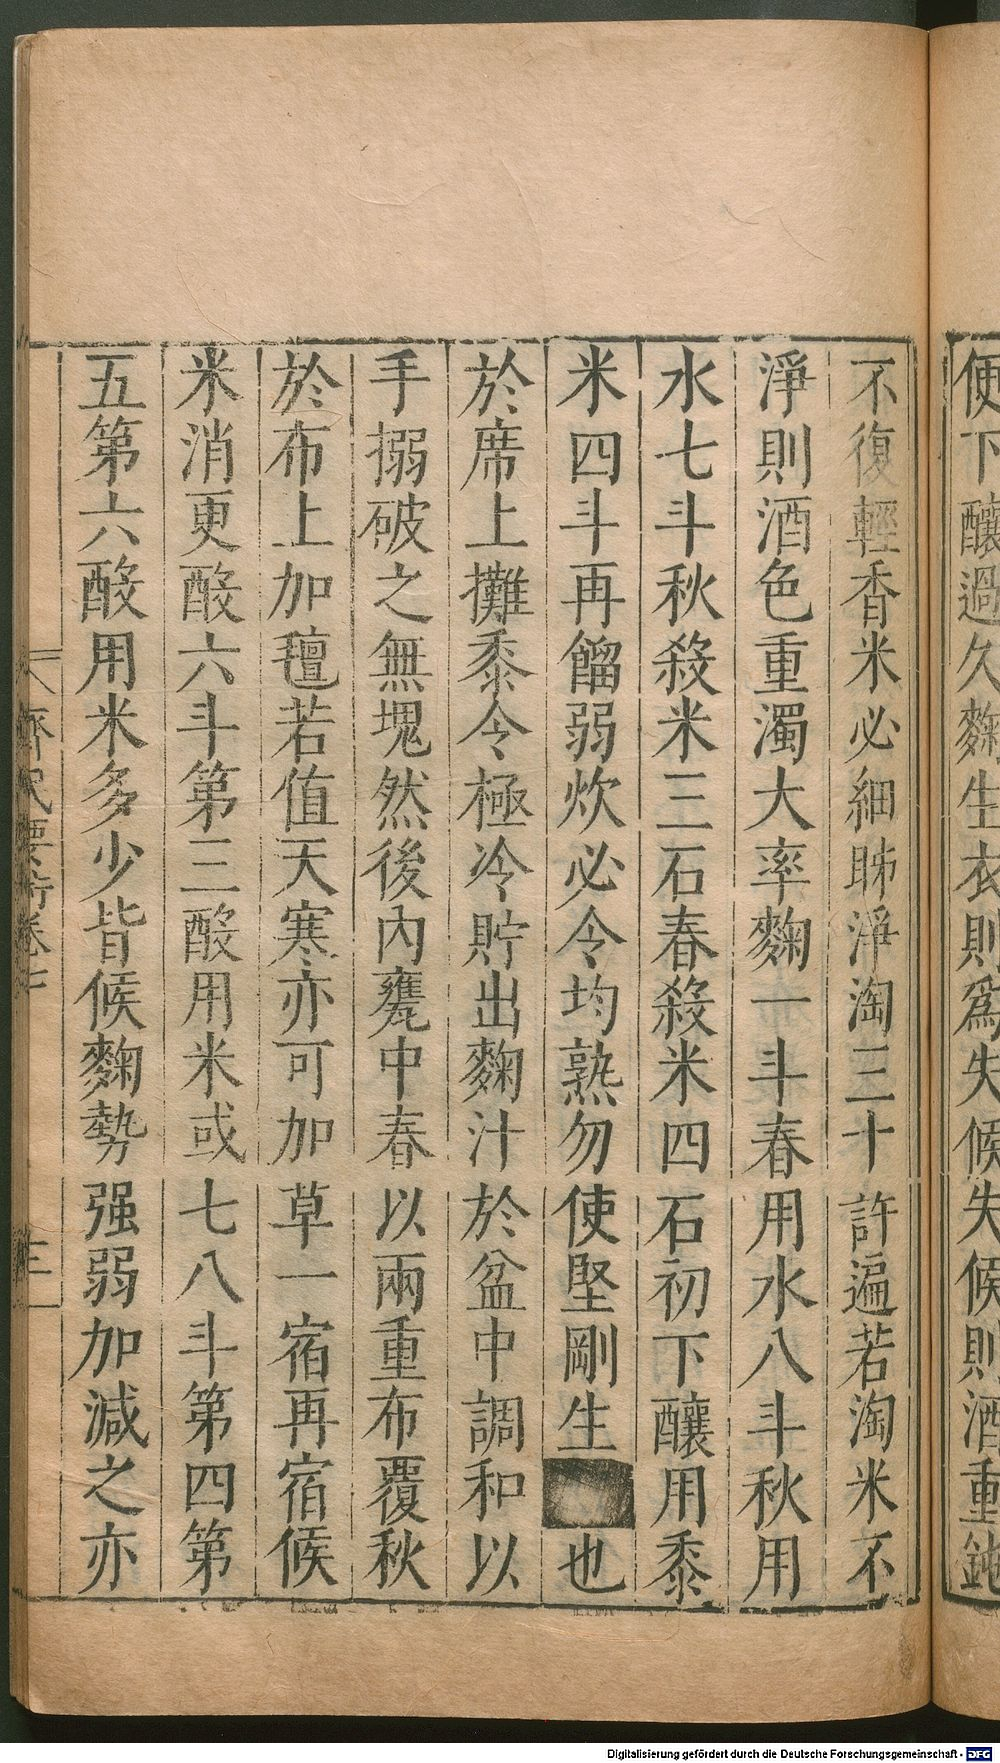 使下釀過久麴生衣則爲失候失候則酒重鈍
不復輕香米必細䏲淨淘三十許遍若淘米不
淨則酒色重濁大率麴一斗春用水八斗秋用
水七斗秋殺米三石春殺米四石初下釀用黍
米四斗再餾弱炊必令均熟勿使堅剛生也
於席上攤黍令極冷貯出麴汁於盆中調和以
手搦破之無塊然後內甕中春以兩重布覆秋
於布上加氊若值天寒亦可加草一宿再宿候
米消更酘六斗第三酘用米或七八斗第四第
五第六酘用米多少皆候麴勢强弱加減之亦
齊民要術卷七
三
Digitalisierung gefördert durch die Deutsche Forschungsgemeinschaft - DFG